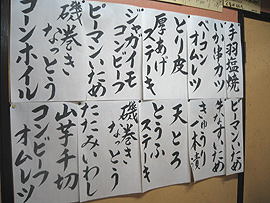 手羽塩焼
いか串カツ
ベーコン
オムレツ
とり皮
厚あげ
ステーキ
ジャガイモ
コンビーフ
ピーマンいため
磯巻き
なっとう
コーンホイル
ピーマンいため
牛なすいため
きゅうり
一本漬
天とろ
とうふ
ステーキ
磯巻き
なっとう
たたみいわし
山芋千切
コンビーフ
オムレツ